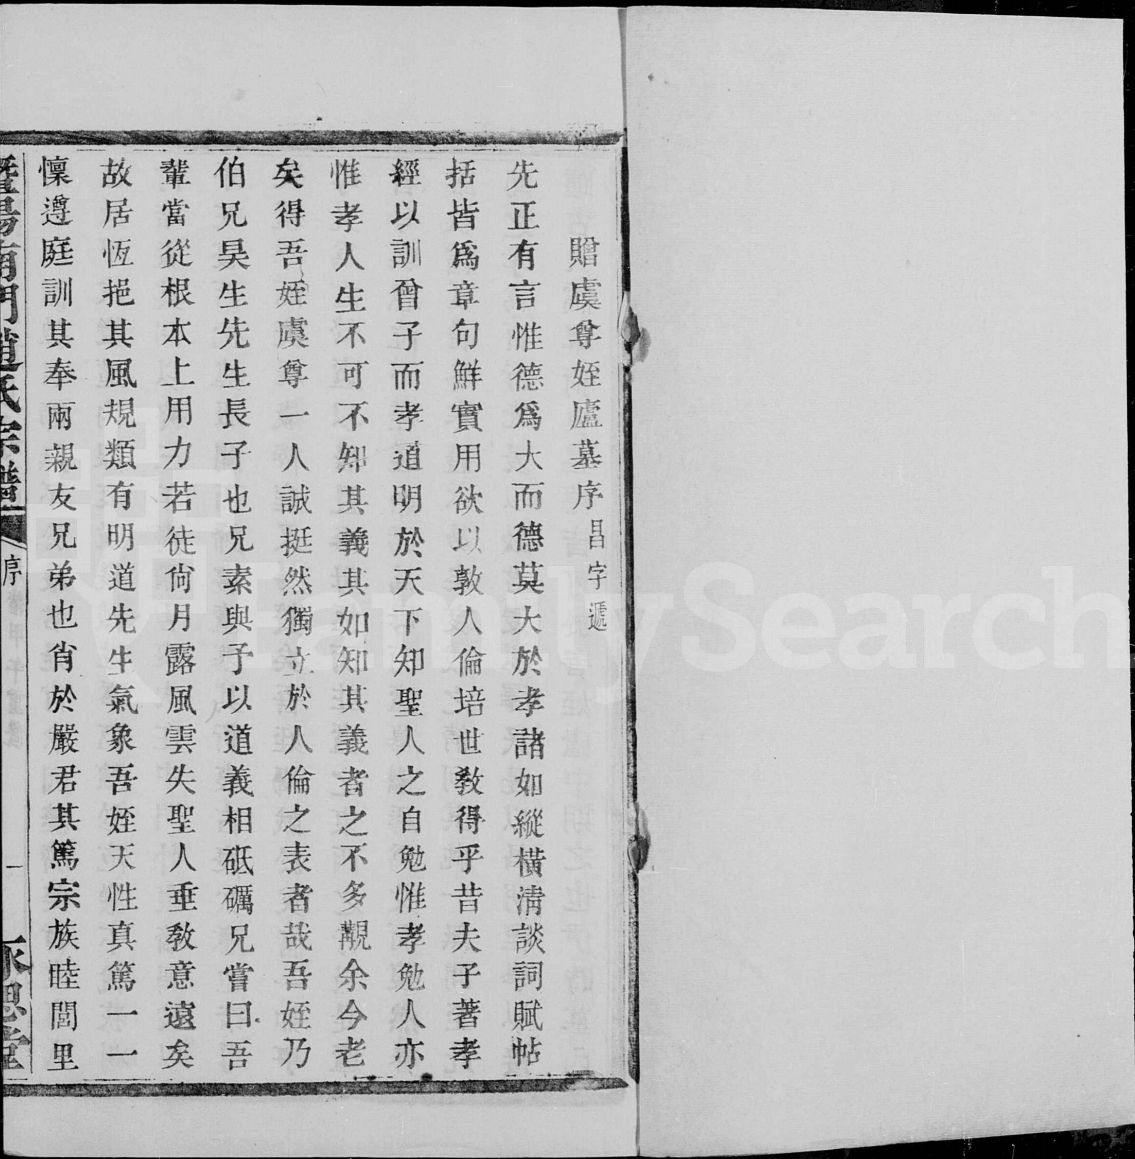 贈虞尊姪廬墓序昌字遞
先正有言惟德爲大而德莫大於孝諸如縱橫淸談詞賦帖
括皆爲章句鮮實用欲以敦人倫培世敎得乎昔夫子著孝
經以訓曾子而孝道明於天下知聖人之自勉惟孝勉人亦
惟孝人生不可不知其義其如知其義者之不多覯余今老
矣得吾姪虞尊一人誠挺然獨立於人倫之表者哉吾姪乃
伯兄昊生先生長子也兄素與予以道義相砥礪兄嘗曰吾
輩當從根本上用力若徒尙月露風雲失聖人垂敎意遠矣
故居恆挹其風規類有明道先生氣象吾姪天性真篤一一
懍遵庭訓其奉兩親友兄弟也肖於嚴君其篤宗族睦閭里
暨陽南門趙氏宗譜
序
一
永思堂
FamilySearch